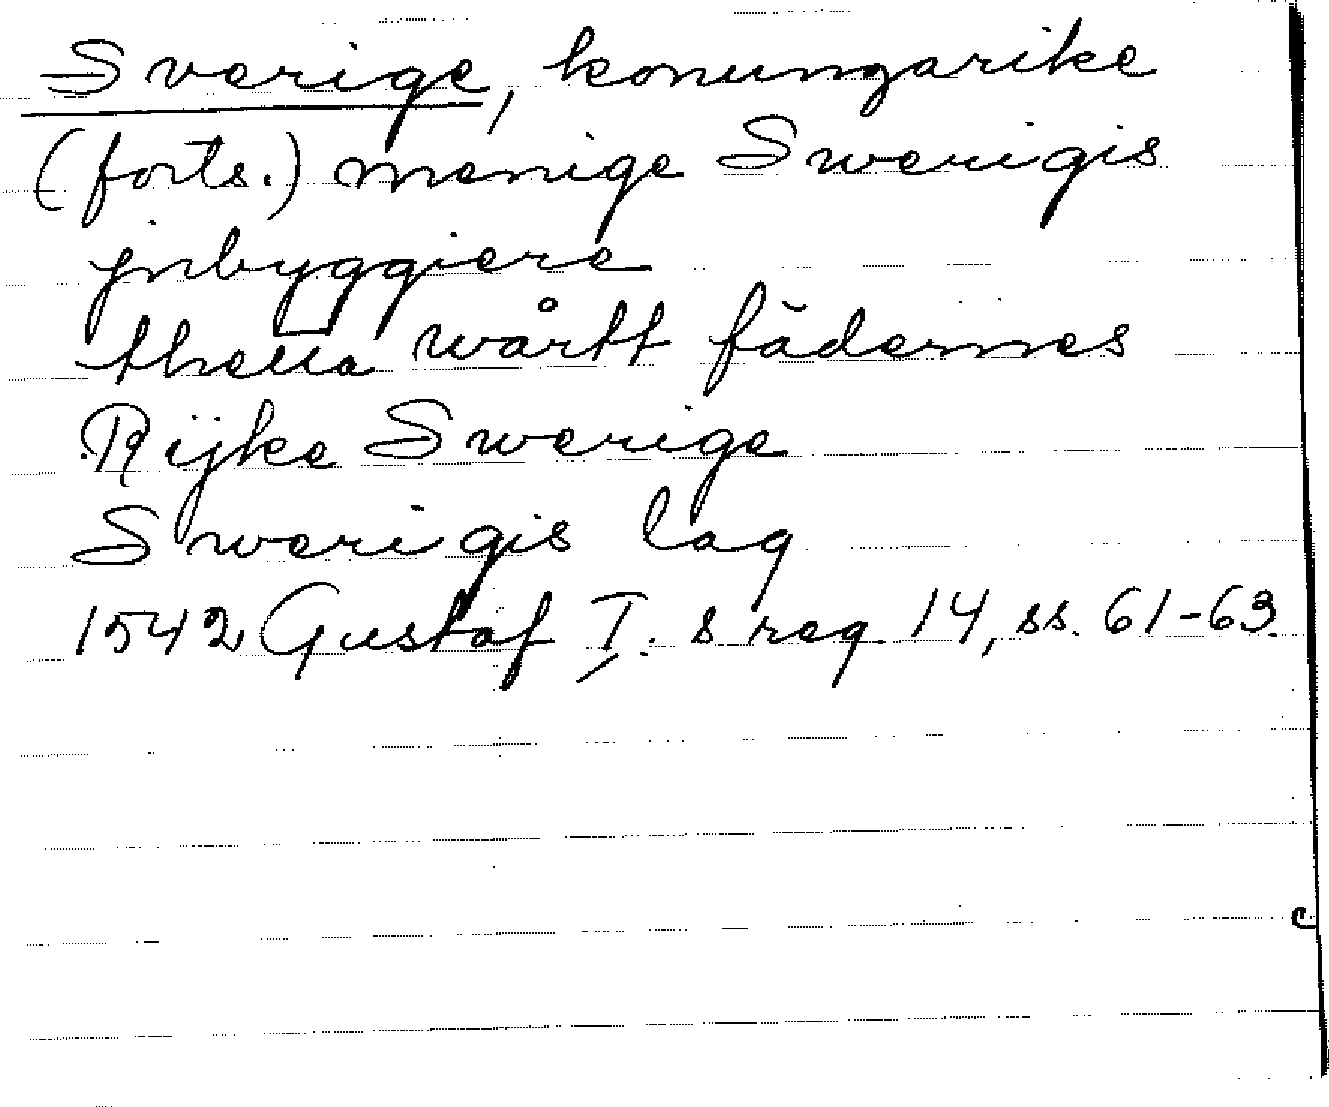 Sverige, konungarike
(forts.) menige Swerigis
jnbyggiere
thetta wårtt fädernes
Rijke Swerige
Swerigis lag
1542 Gustaf I:s reg 14, ss. 61-63.